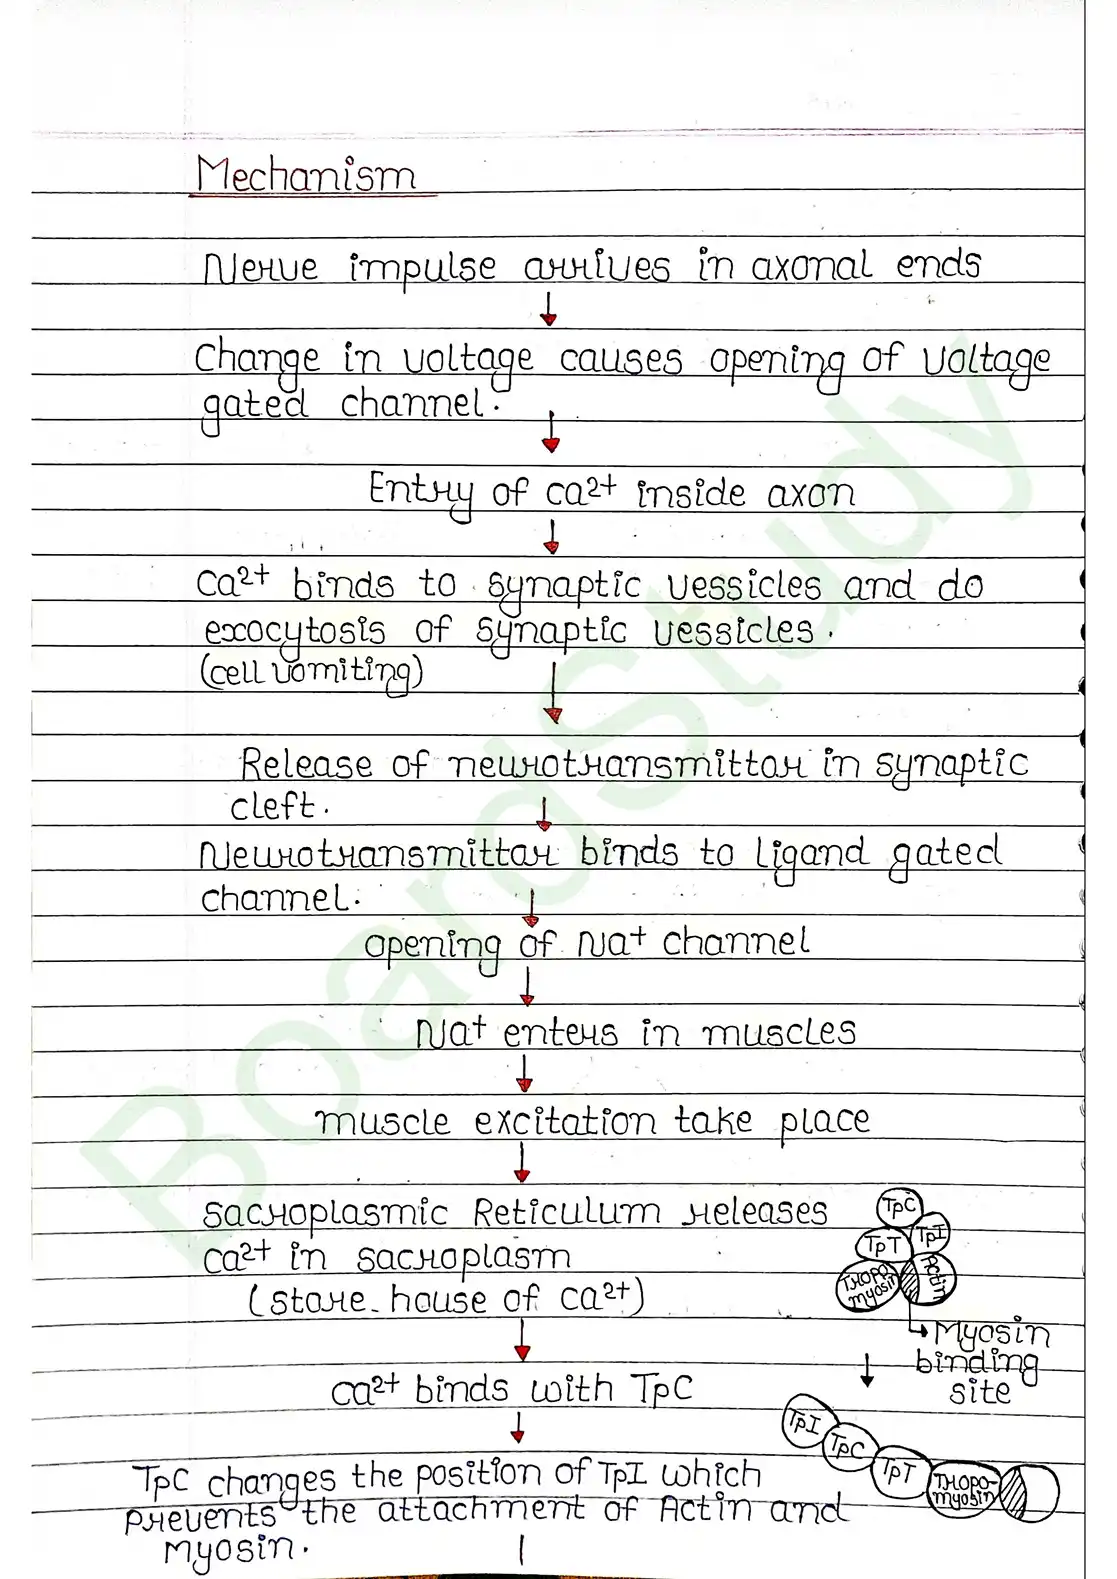 Mechanism
Nerve impulse arrives in axonal ends
Change in voltage causes opening of voltage
gated channel.
Entry of Ca2+ inside axon
Ca2+ binds to synaptic vessicles and do
exocytosis of synaptic vessicles.
(cell vomiting)
Release of neurotransmittor in synaptic
cleft.
Neurotransmittor binds to ligand gated
channel.
opening of Na+ channel
Na+ enters in muscles
muscle excitation take place
Sacroplasmic Reticulum releases
Ca2+ in sacroplasm
(store-house of Ca2+)
TpC
TpT TpI
Tropo-
myosin
Actin
Myosin
binding
site
Ca2+ binds with TpC
TpI
TpC
TpT
Tropo-
myosin
TpC changes the position of TpI which
prevents the attachment of Actin and
myosin.
BoardStudy